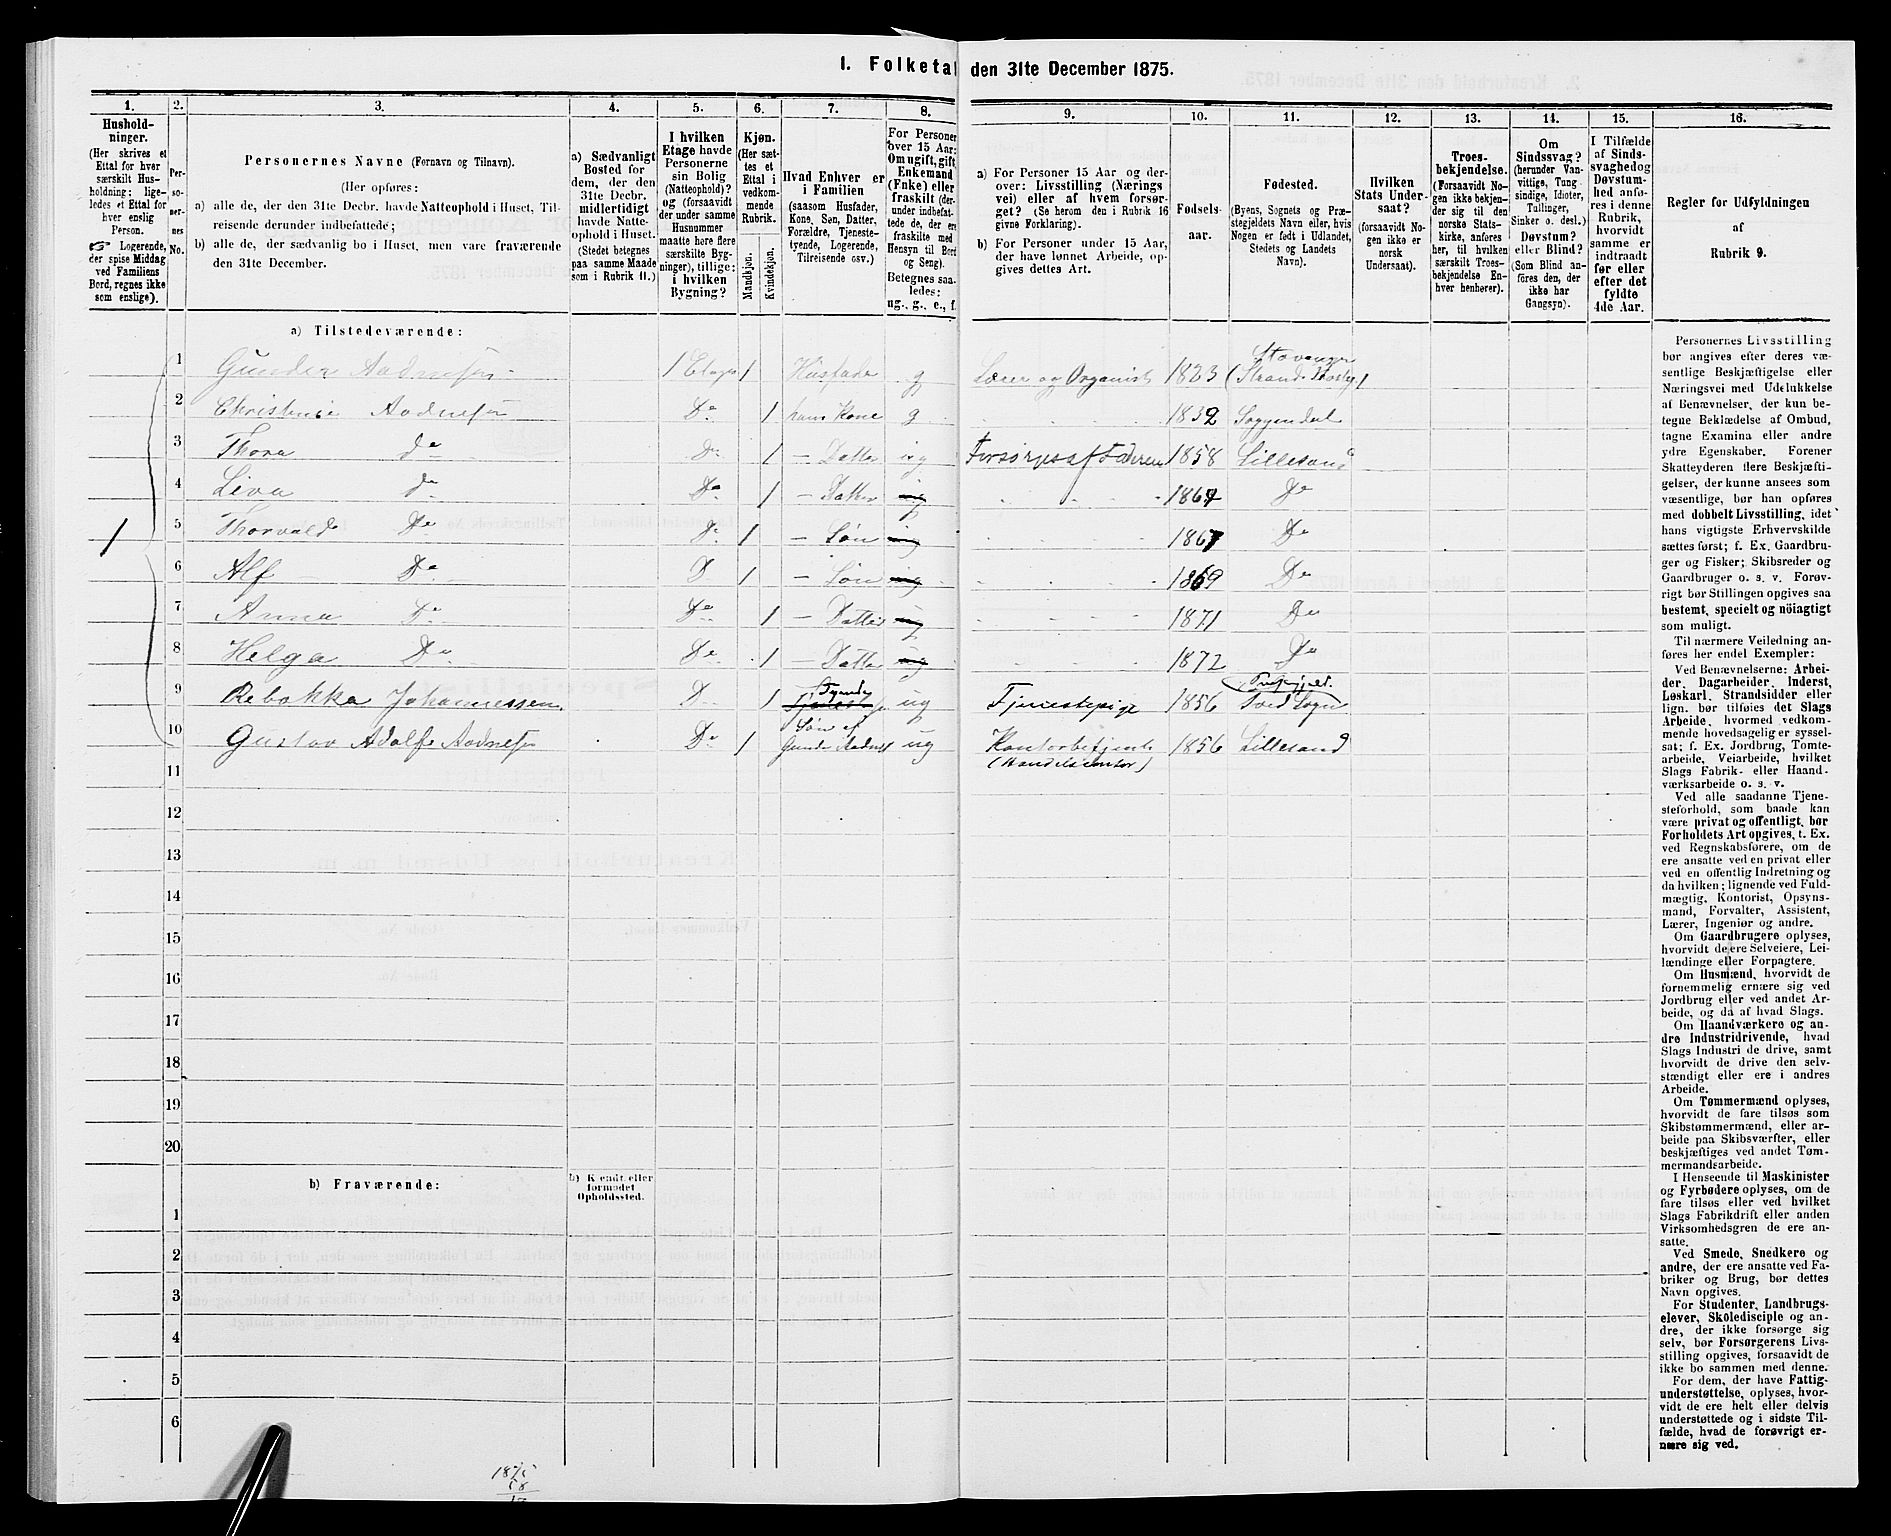 1. Folketal den 31te December 1875.
1.
Hushold-
ninger.
(Her skrives et
Ettal for hver
særskilt Hus-
holdning; lige-
ledes et Ettal for
hver enslig
Person.
☞ Logerende,
der spise Middag
ved Familiens
Bord, regnes ikke
som enslige).
2.
Per-
so-
ner-
nes
No.
3.
Personernes Navne (Fornavn og Tilnavn).
(Her opføres:
a) alle de, der den 31te Decbr. havde Natteophold i Huset, Til-
reisende derunder indbefattede;
b) alle de, der sædvanlig bo i Huset, men vare fraværende
den 31te December.
4.
a) Sædvanligt
Bosted for
dem, der den
31te Decbr.
midlertidigt
havde Natte-
ophold i Huset.
(Stedet betegnes
paa samme Maade
som i Rubrik 11.)
5.
I hvilken
Etage havde
Personerne
sin Bolig
(Natteophold)?
og (forsaavidt
der under samme
Husnummer
maatte høre flere
særskilte Byg-
ninger), tillige:
i hvilken
Bygning?
6.
Kjøn.
(Her sæt-
tes et
Ettal i
vedkom-
mende
Rubrik.
Mandkjøn.
Kvindekjøn.
7.
Hvad Enhver er
i Familien
(saasom Husfader,
Kone, Søn, Datter,
Forældre, Tjeneste-
tyende, Logerende,
Tilreisende osv.)
8.
For Personer
over 15 Aar:
Om ugift, gift,
Enkemand
(Enke) eller
fraskilt (der-
under indbefat-
tede de, der ere
fraskilte med
Hensyn til Bord
og Seng).
Betegnes saa-
ledes:
ug., g., e., f.
9.
a) For Personer 15 Aar og der-
over: Livsstilling (Nærings
vei) eller af hvem forsør-
get? (Se herom den i Rubrik 16
givne Forklaring).
b) For Personer under 15 Aar,
der have lønnet Arbeide, op-
gives dettes Art.
10.
Fødsels-
aar.
11.
Fødested.
(Byens, Sognets og Præ-
stegjeldets Navn eller, hvis
Nogen er født i Udlandet,
Stedets og Landets
Navn).
12.
Hvilken
Stats Under-
saat?
(forsaavidt No-
gen ikke er
norsk
Undersaat).
13.
Troes-
bekjendelse.
(Forsaavidt No-
gen ikke bekjen-
der sig til den
norske Stats-
kirke, anføres
her, til hvilken
særskilt Troes-
bekjendelse En-
hver henhører).
14.
Om
Sindssvag?
(herunder Van-
vittige, Tung
sindige, Idioter,
Tullinger,
Sinker o. desl.)
Døvstum?
eller Blind?
(Som Blind an-
føres den, der
ikke har
Gangsyn).
15.
I Tilfælde
af Sinds-
svaghed og
Døvstum-
hed anfø-
res i denne
Rubrik,
hvorvidt
samme er
indtraadt
før eller
efter det
fyldte
4de Aar.
16.
Regler for Udfyldningen
af
Rubrik 9.
a) Tilstedeværende:
1
1 Gunder Aadnesen 1 Etage 1 Husfader g Lærer og Organist 1823 Stavanger (Strand
2 Christense Aadnesen Do 1 hans Kone g 1832 Soggendal
3 Thora do Do 1 – Datter ug Forsørges af Faderen 1858 Lillesand
4 Liva do Do 1 – Datter ug 1864 Do
5 Thorvald Do Do 1 – Søn ug 1867 Do
6 Alf Do D 1 – Søn ug 1869 Do
7 Anna Do Do 1 – Datter ug 1871 Do
8 Helga Do Do 1 – Datter ug 1872 Do
9 Rebekka Johannessen D 1 Tyende ug Tjenestepige 1856 Sogn
10 Gustav Adolf Aadnesen Do 1 Søn af Gunder Aadnes ug Kontorbetjent 1856 Lillesand
(Handelscontor)
11
12
13
14
15
16
17
18
19
20
b) Fraværende:
b) Kjendt eller
formodet
Opholdssted.
1
2
3
4
5
6
1875
58
17
Personernes Livsstilling
bør angives efter deres væ-
sentlige Beskjæftigelse eller
Næringsvei med Udelukkelse
af Benævnelser, der kun be-
tegne Beklædelse af Ombud,
tagne Examina eller andre
ydre Egenskaber. Forener
Skatteyderen flere Beskjæfti-
gelser, der kunne ansees som
væsentlige, bør han opføres
med dobbelt Livsstilling, idet
hans vigtigste Erhvervskilde
sættes først; f. Ex. Gaardbru-
ger og Fisker; Skibsreder og
Gaardbruger o. s. v. Forøv-
rigt bør Stillingen opgives saa
bestemt, specielt og nöiagtigt
som muligt.
Til nærmere Veiledning an-
føres her endel Exempler:
Ved Benævnelserne: Arbei-
der, Dagarbeider, Inderst,
Løskarl, Strandsidder eller
lign. bør tilføies det Slags
Arbeide, hvormed vedkom-
mende hovedsagelig er syssel-
sat; f. Ex. Jordbrug, Tomte-
arbeide, Veiarbeide, hvilket
Slags Fabrik- eller Haand-
værksarbeide o. s. v.
Ved alle saadanne Tjene-
steforhold, som baade kan
være privat og offentligt, bør
Forholdets Art opgives, t. Ex.
ved Regnskabsførere, om de
ere ansatte ved en privat eller
ved en offentlig Indretning og
da hvilken; lignende ved Fuld-
mægtig, Kontorist, Opsyns-
mand, Forvalter, Assistent,
Lærer, Ingeniør og andre.
Om Gaardbrugere oplyses,
hvorvidt de ere Selveiere, Lei-
lændinge eller Forpagtere.
Om Husmænd, hvorvidt de
fornemmelig ernære sig ved
Jordbrug eller ved andet Ar-
beide, og da af hvad Slags.
Om Haandværkere og an-
dre Industridrivende, hvad
Slags Industri de drive, samt
hvorvidt de drive den selv-
stændigt eller ere i andres
Arbeide.
Om Tømmermænd oplyses,
hvorvidt de fare tilsøs som
Skibstømmermænd, eller ar-
beide paa Skibsværfter, eller
beskjæftiges ved andet Tøm-
mermandsarbeide.
I Henseende til Maskinister
og Fyrbødere oplyses, om de
fare tilsøs eller ved hvilket
Slags Fabrikdrift eller anden
Virksomhedsgren de ere an-
satte.
Ved Smede, Snedkere og
andre, der ere ansatte ved Fa-
briker og Brug, bør dettes
Navn opgives.
For Studenter, Landbrugs-
elever, Skoledisciple og an-
dre, der ikke forsørge sig
selv, bør Forsørgerens Livs-
stilling opgives, forsaavidt de
ikke bo sammen med denne.
For dem, der have Fattig-
understøttelse, oplyses, hvor-
vidt de ere helt eller delvis
understøttede og i sidste Til-
fælde, hvad de forøvrigt er-
nære sig ved.